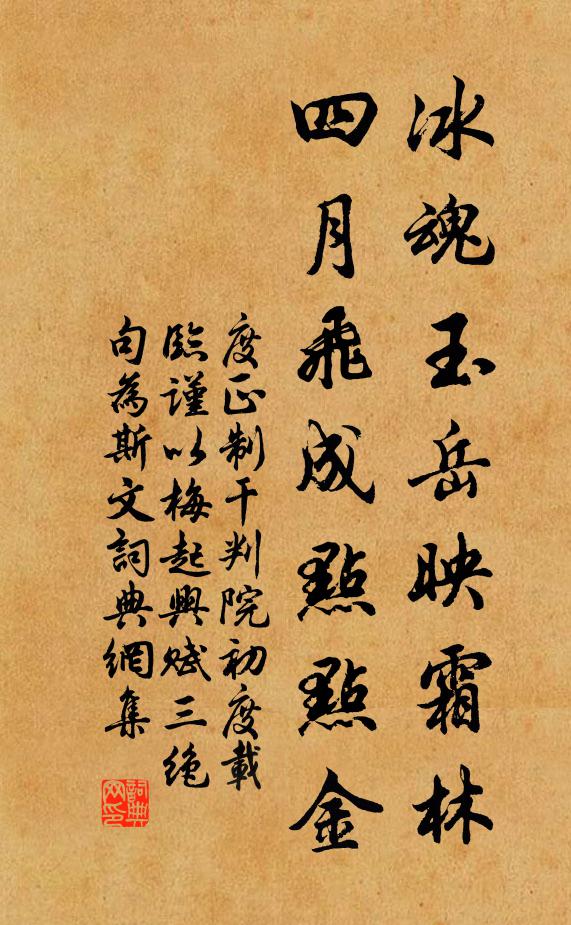 冰魂玉岳映霜林
四月飛成點點金
度正制干判院初度載
臨謹以梅起興賦三绝
句為斯文詞典網集
詞典网印